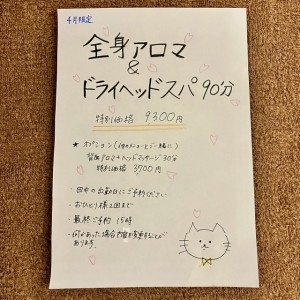 4月限定
全身アロマ
&
ドライヘッドスパ 90分
特別価格 9300円
★ オプション(他のメニューとご一緒に)
背面アロマ+ヘッドマッサージ 30分
特別価格 3700円
・田中の出勤日にご予約ください
・おひとり様2回まで
・最終ご予約 15時
・何かあった場合内容を変更することが
あります。